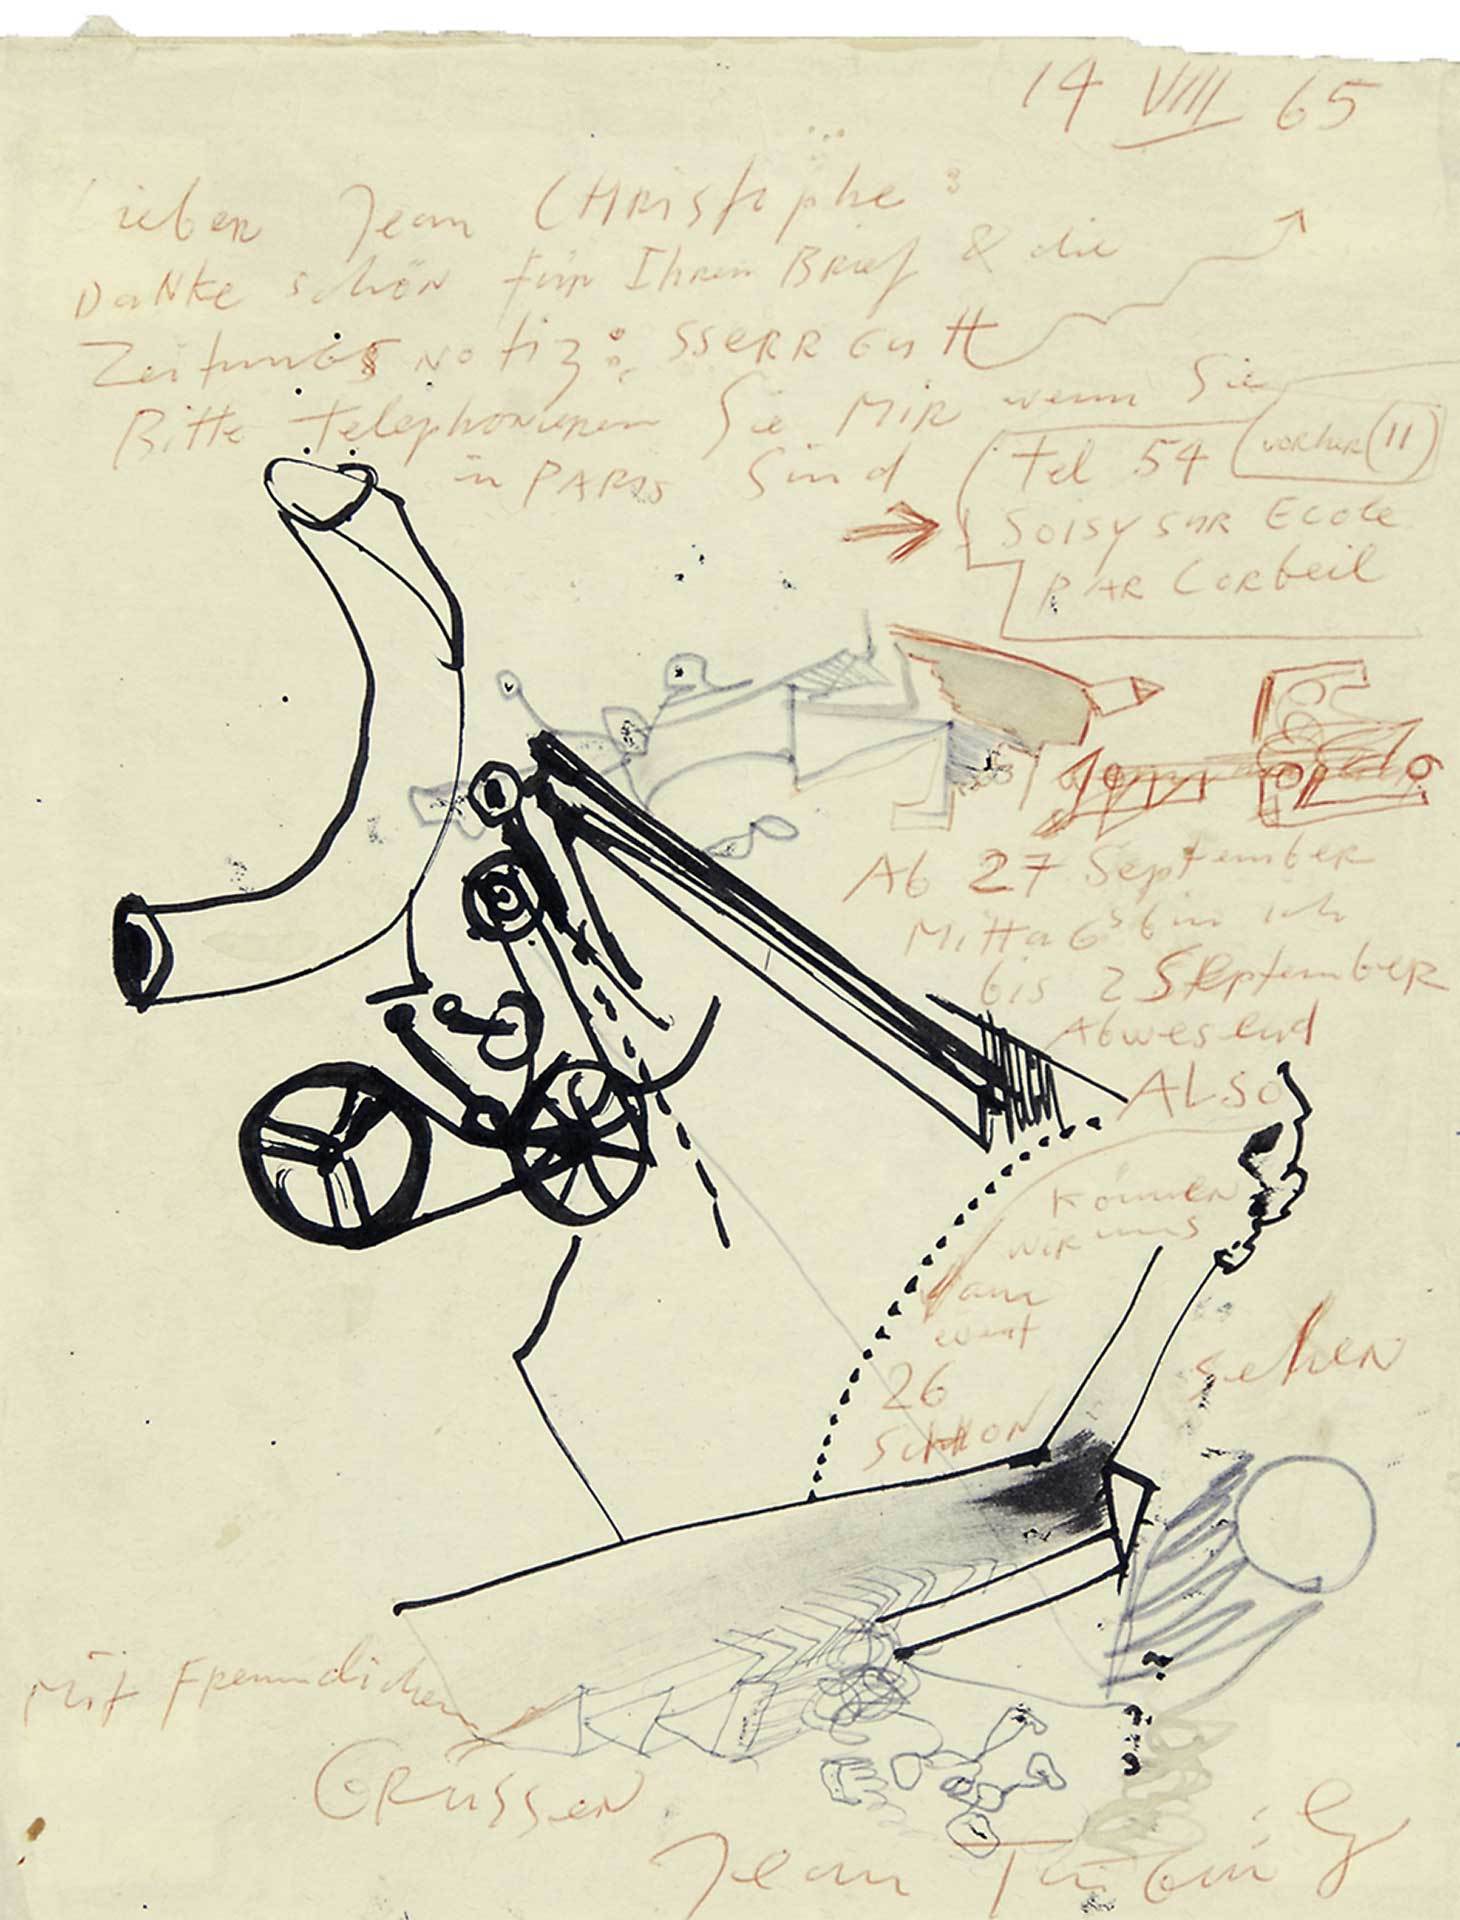 14 VIII 65
Lieber Jean CHRistophe:
DaNke schön für Ihren BRief & die
ZeitunGs Notiz: SSeRR Gutt
Bitte telephonieren Sie MiR wenn Sie
in PARis Sind
tel 54 (vorher (11)
SOISY SUR ECOLE
PAR CoRbeil
Ab 27 SeptembeR
MittaGs bin ich
bis 2 SeptembeR
AbweseNd
ALSO
KönneN
wiR uns
am
event
26
ScHON
seheN
Mit FReundlichen
GRüsseN
Jean